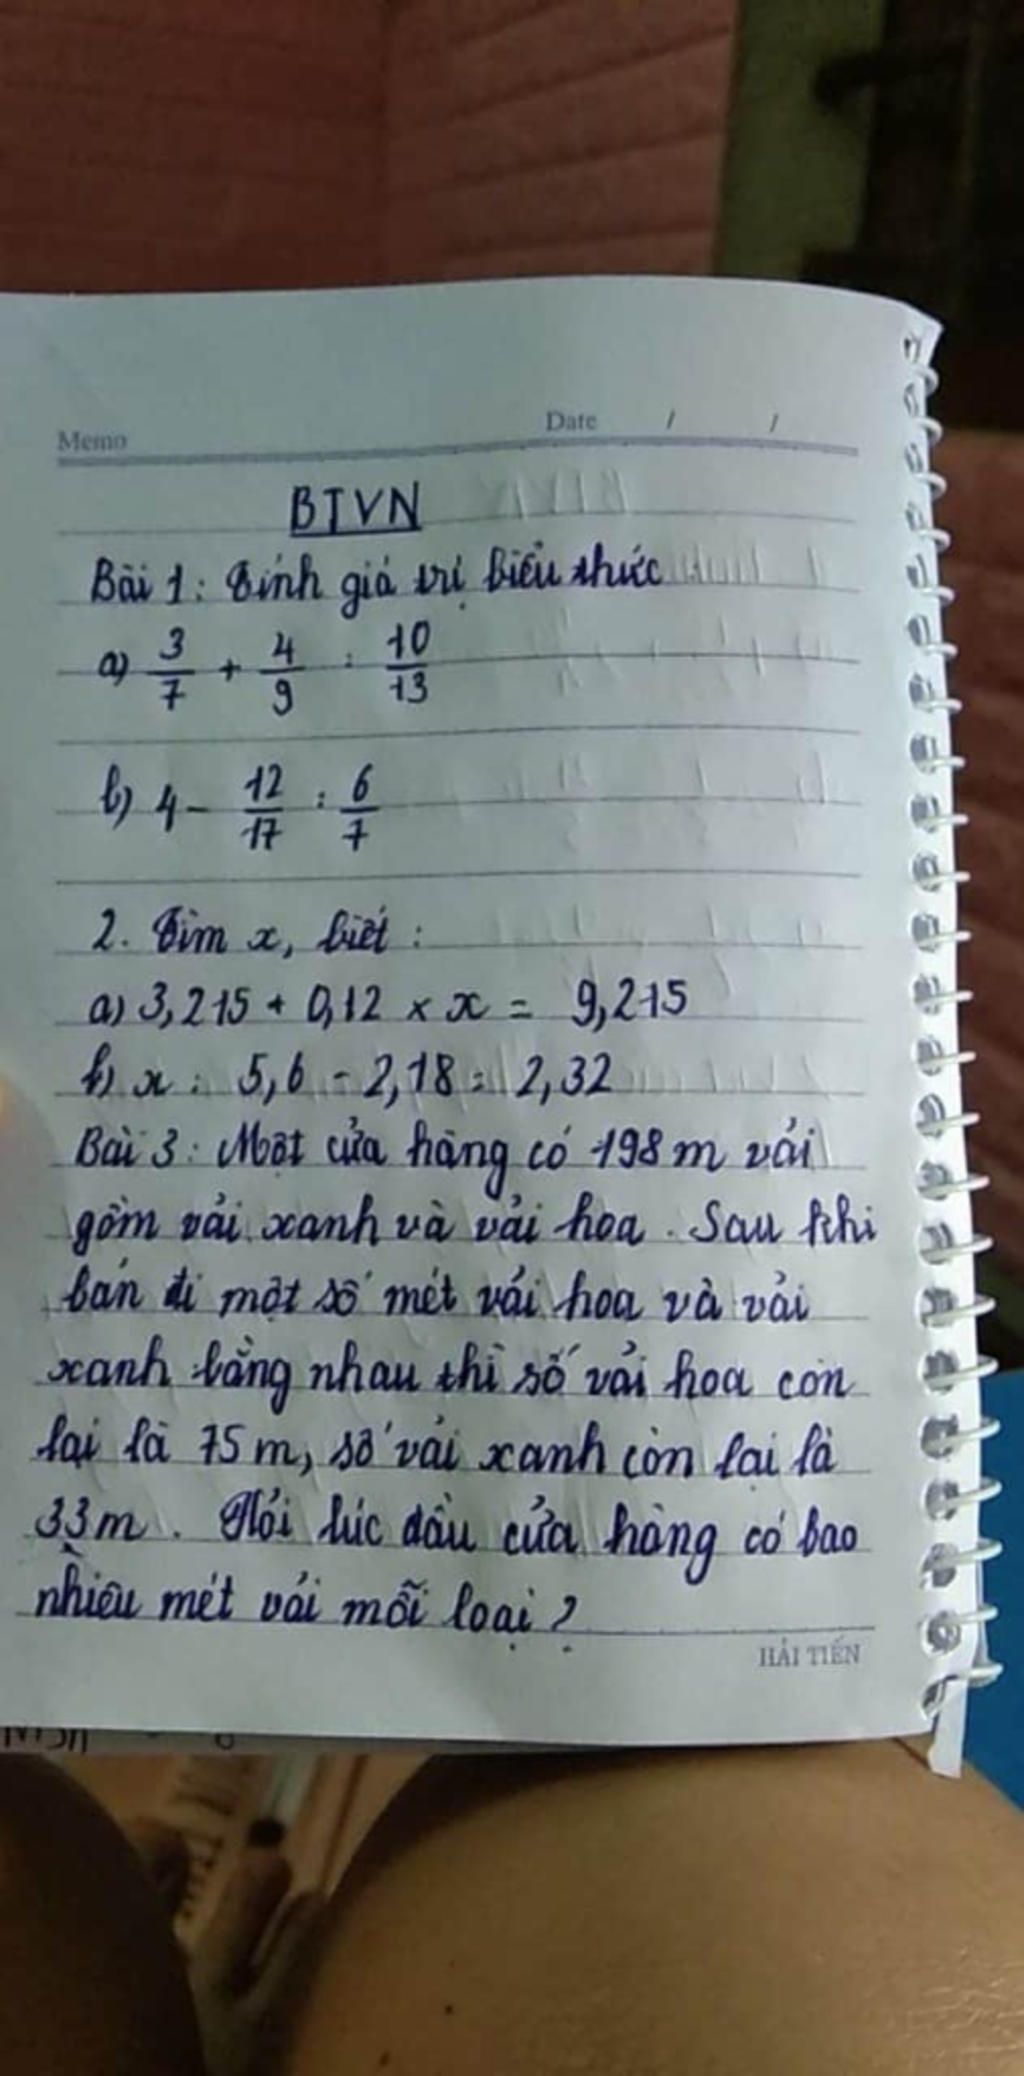 Memo Date / /
BTVN
Bài 1: Tính giá trị biểu thức
a) 3/7 + 4/9 : 10/13
b) 4 - 12/17 : 6/7
2. Tìm x, biết :
a) 3,215 + 0,12 × x = 9,215
b) x : 5,6 - 2,18 = 2,32
Bài 3: Một cửa hàng có 198 m vải
gồm vải xanh và vải hoa. Sau khi
bán đi một số mét vải hoa và vải
xanh bằng nhau thì số vải hoa còn
lại là 75 m, số vải xanh còn lại là
33 m. Hỏi lúc đầu cửa hàng có bao
nhiêu mét vải mỗi loại ?
HẢI TIẾN